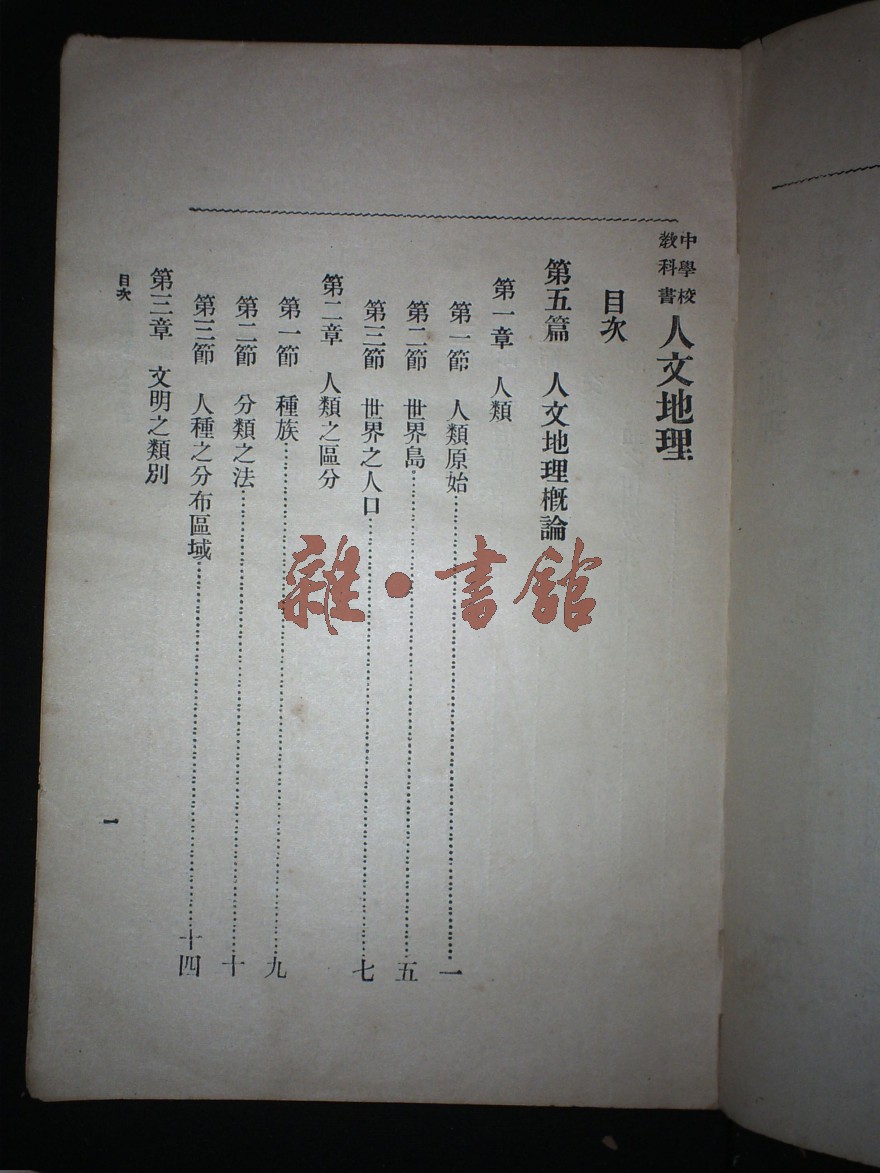 中學校
教科書
人文地理
目次
第五篇 人文地理概論
第一章 人類
第一節 人類原始……一
第二節 世界島……五
第三節 世界之人口……七
第二章 人類之區分
第一節 種族……九
第二節 分類之法……十
第三節 人種之分布區域……十四
第三章 文明之類別
目次
一
雜·書館